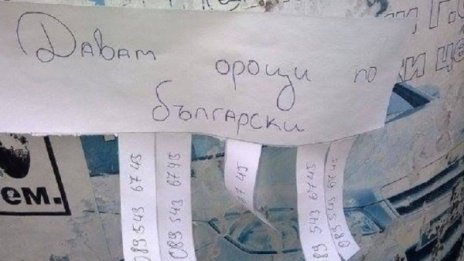 Давам орощи по
български
089 543 6745
089 543 6745
7 45
89 543 6745
089 543 6745
ки це
ем.